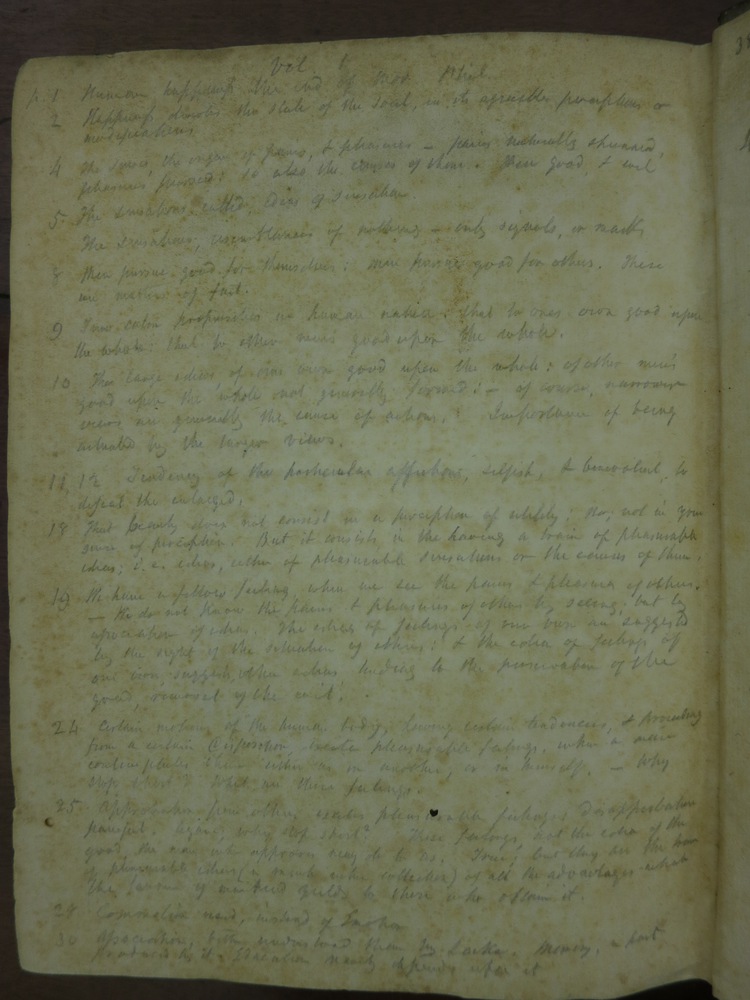 Vol 1
p. 1. Human happiness the end of Mor. Phil.
2 Happiness denotes the state of the soul, in its agreeable perceptions or
modifications
4 The senses the organ of pains, & pleasures — pains naturally shunned,
pleasures pursued: so also the causes of them. Then good, & evil
5. The sensations called ideas of sensation
The sensations, resemblances of nothing — only signals, or marks
8 Men pursue good for themselves: men pursue good for others. These
are matters of fact.
9 Two calm propensities in human nature: that to ones own good upon
the whole: that to other mens good upon the whole.
10 These large ideas of our own good upon the whole: of other men's
good upon the whole not generally formed: — of course, narrower
views are generally the cause of actions. Importance of being
actuated by the larger views.
11, 12 Tendency of the particular affections, selfish, & benevolent, to
defeat the enlarged.
18 That beauty does not consist in a perception of utility: No, not in your
sense of perception. But it consists in the having a train of pleasurable
ideas; i.e. ideas, either of pleasurable sensations or the causes of them.
19 We have a fellow feeling, when we see the pains & pleasures of others.
— We do not know the pains & pleasures of others by seeing, but by
association of ideas. The ideas of feelings of our own are suggested
by the sight of the situation of others: & the ideas of feelings of
our own, suggest other ideas, tending to the preservation of the
good, removal of the evil.
24 Certain motions of the human body, having certain tendencies, & proceeding
from a certain disposition excite pleasurable feelings, when a man
contemplates them either as in another, or in himself. — Why
stop short? What are these feelings.
25. Approbation from others excites pleasurable feelings: Disapprobation
painful. Again, why stop short? These feelings, not the idea of the
good the man who approves may do to us. True; but they are the train
of pleasurable ideas of all the advantages which
the favour of mankind yields to those who obtain it.
29 used, instead of Emotion
30 Association, better understood than by Locke. Memory, a part
produced by it. Education mainly depends upon it